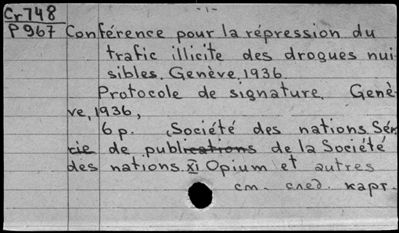 Cr 748 - 1 -
P 967 Conférence pour la répression du
trafic illicite des drogues nui-
sibles. Genève, 1936.
Protocole de signature. Genè-
ve, 1936,
6 p. (Société des nations. Sé-
rie de publications de la Société
des nations. XI Opium et autres
см. след. карт.